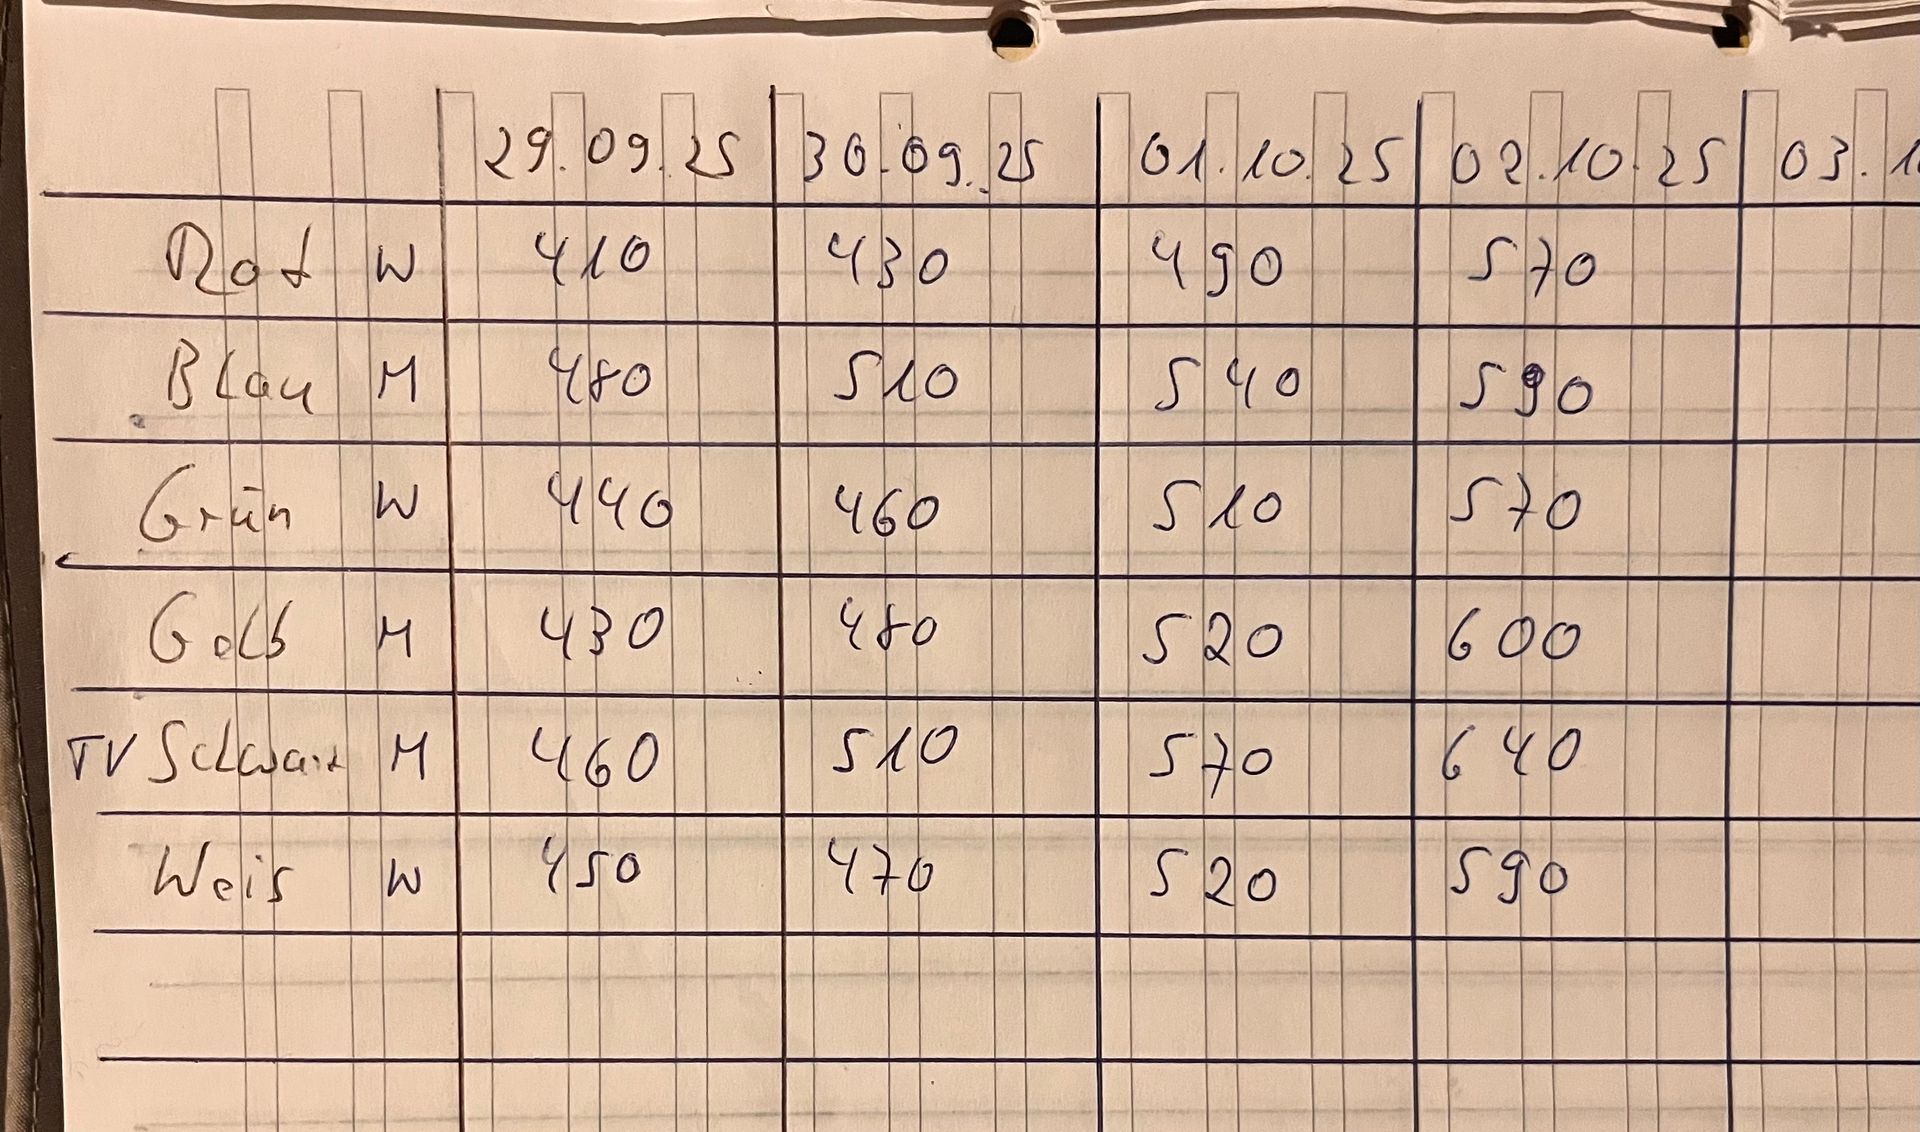 29.09.25 30.09.25 01.10.25 02.10.25 03.1
Rot W 410 430 490 570
Blau M 480 510 540 590
Grün W 440 460 510 570
Gelb M 430 480 520 600
TV Schwarz M 460 510 570 640
Weis W 450 470 520 590